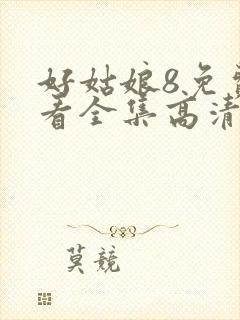 好姑娘8免
看全集高清
莫競